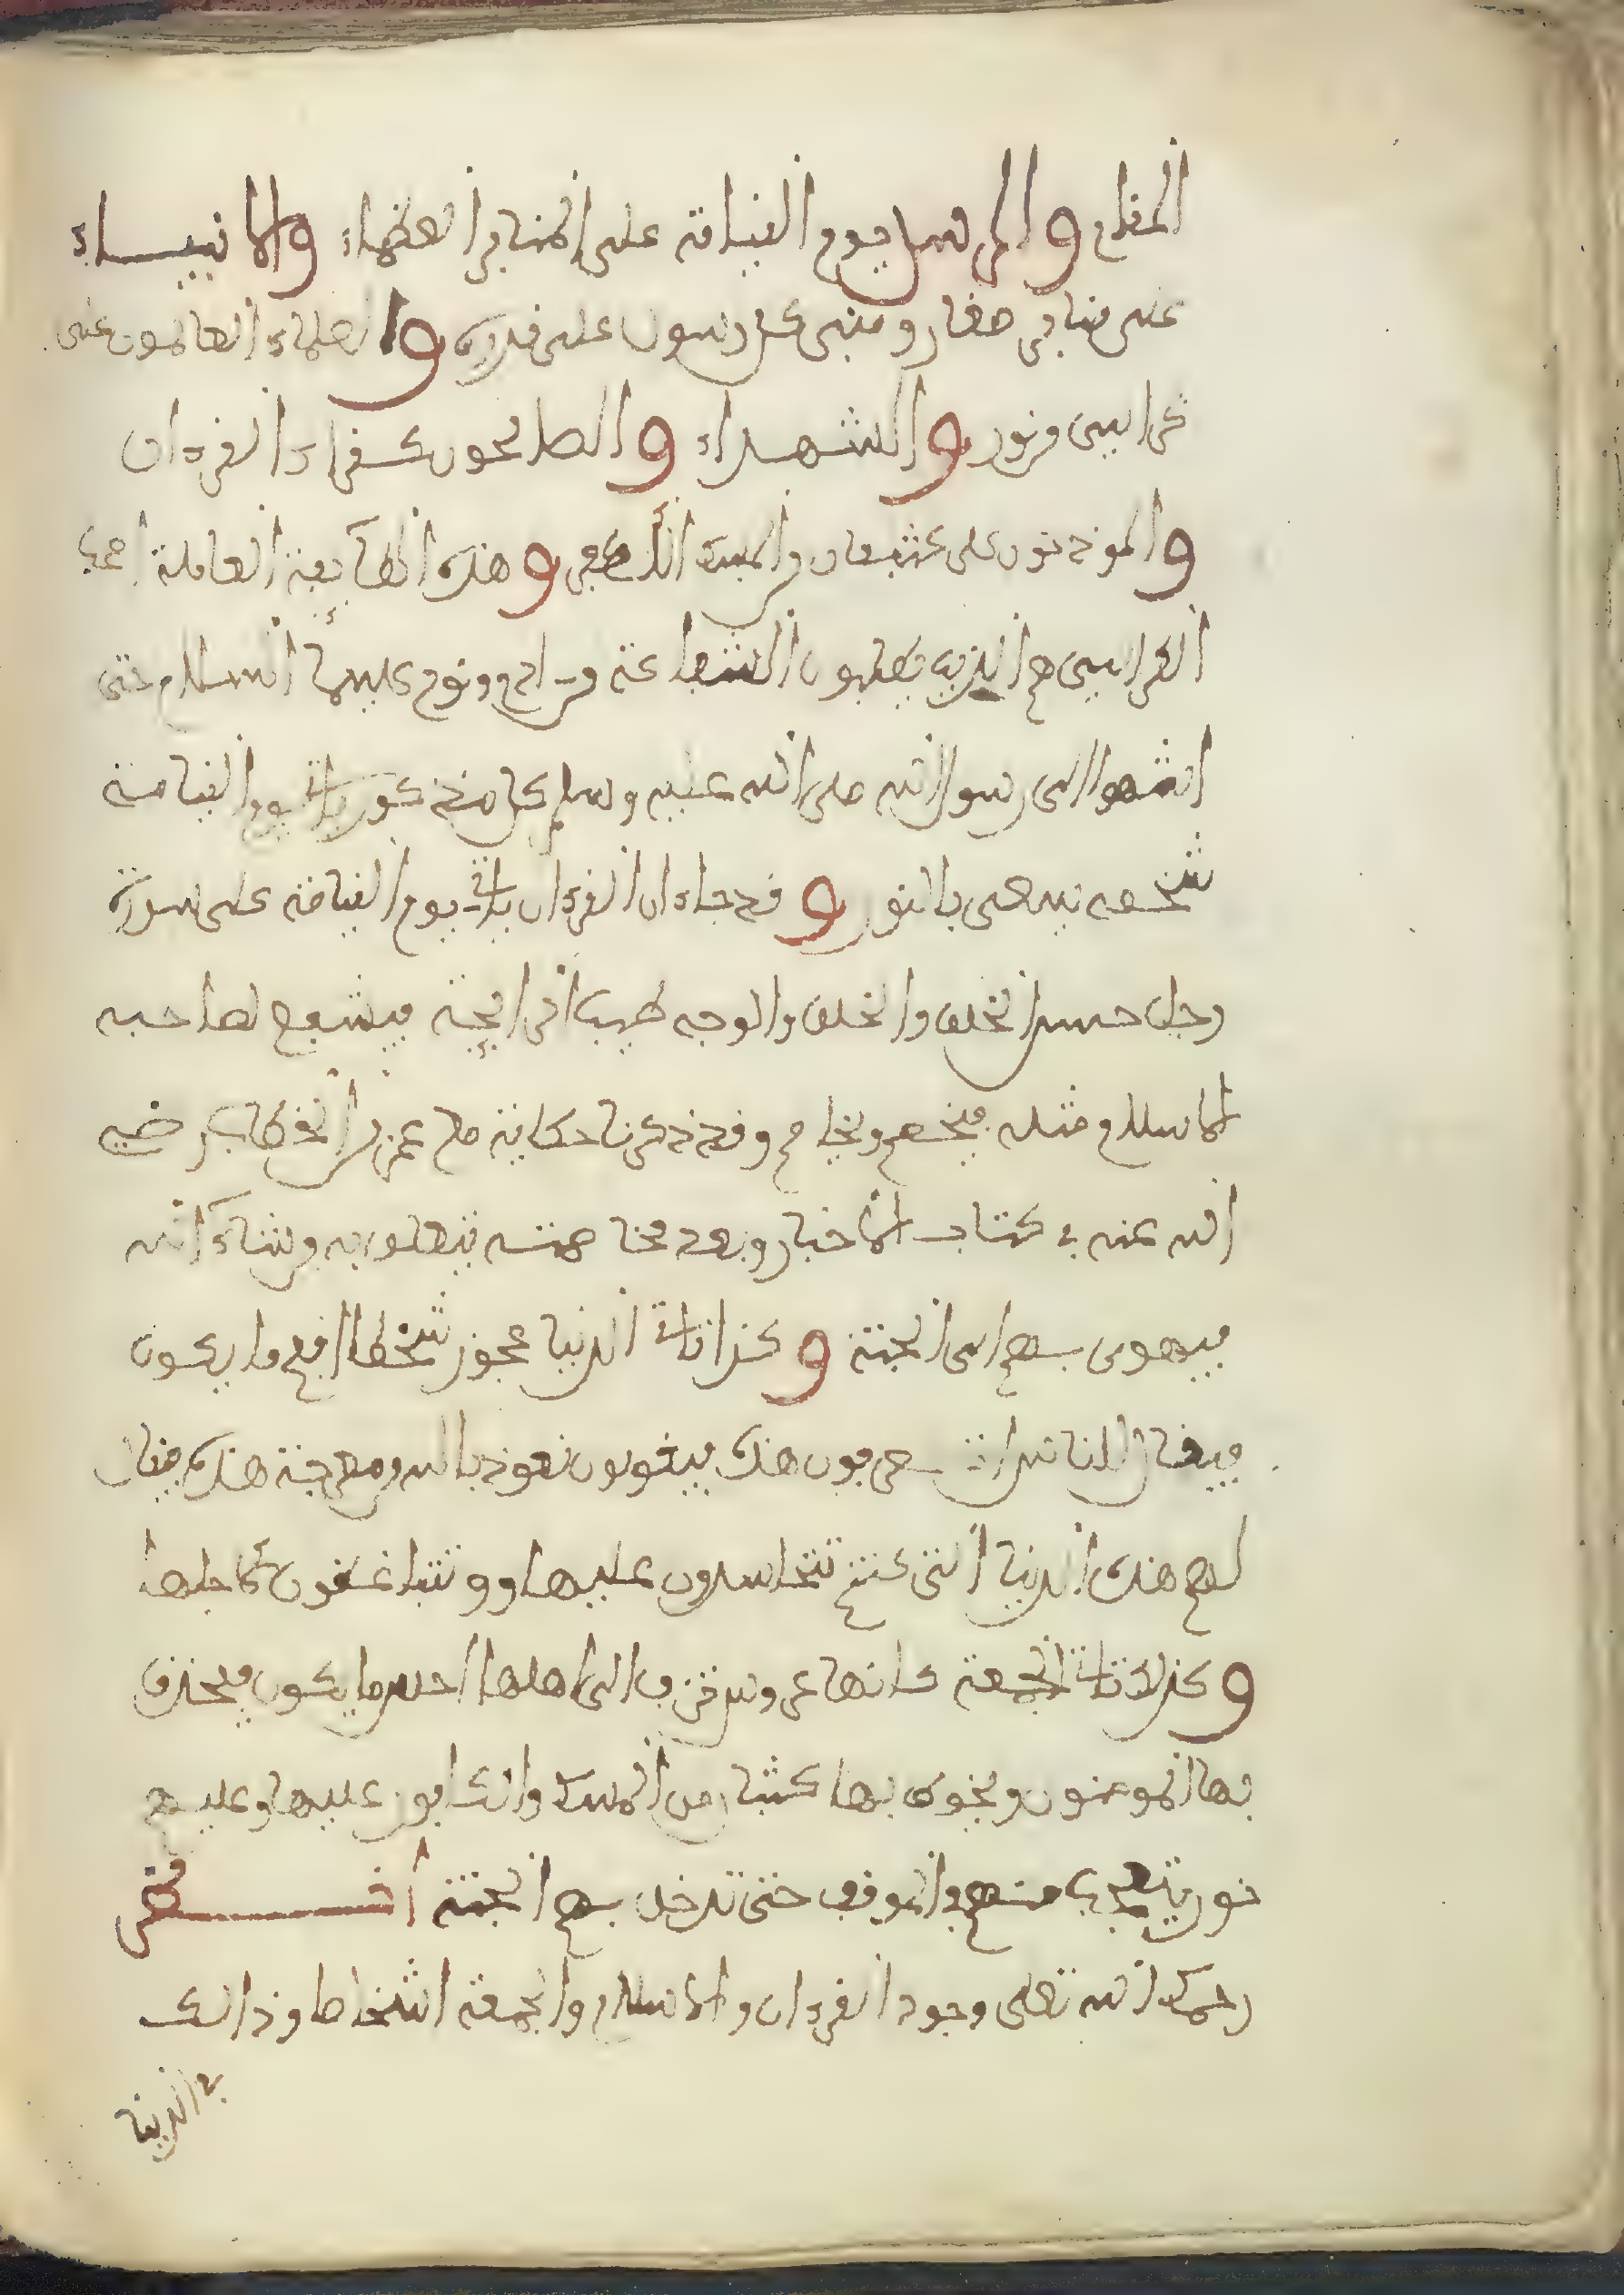 المقام والمرسل يوم القيامة على المنابر العظماء والانبياء
على منابر صغار ومنبر كل رسول على قدره والعلماء العاملون على
كراسي من نور والشهداء والصالحون كقراء القرءان
والمؤذنون على كثبان من المسك الأذفر وهذه الطآئفة العاملة اصحاب
الكراسي هم الذين يطلبون الشفاعة من ءادم ونوح عليهما السلام حتى
انتهوا الى رسول الله صلى الله عليه وسلم كل مذكور يات يوم القيامة
شخصه يسعى بالنور وقد جاء ان القرءان يات يوم القيامة على سورة
رجل حسن الخلق والخلق والوجه طيب الرايحة فيشفع لصاحبه
الاسلام مثله فيخصم ويخاصم وقد ذكرنا حكايته مع عمر بن الخطاب رضي
الله عنه في كتاب الاخبار وبعد مخاصمته يتعلق به من شاء الله
فيهوى بهم الى الجنة وكذا تات الدنيا عجوز شمطا اقبح ما يكون
فيقال للناس اتعرفون هذه فيقولون نعوذ بالله من معرفة هذه فيقال
لهم هذه الدنيا التي كنتم تتحاسدون عليها وتتباغضون لأجلها
وكذلك تات الجمعة كانها عروس تزف الى اهلها احسن ما يكون فيحدق
بها المومنون ويخوى بها كثبان من المسك والكافور عليها وعليهم
نور يتعجب منهم في الموقف حتى تدخل بهم الجنة أنظر
رحمك الله تعلى وجود القرءان والاسلام والجمعة اشخاصا وذالك
في الدنيا